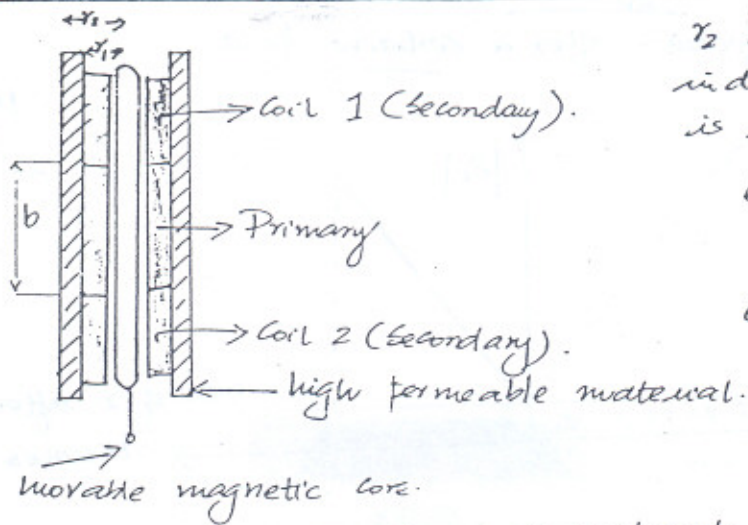 r₂
r₁
r₂
ind
is
Coil 1 (Secondary).
b
Primary
Coil 2 (Secondary).
high permeable material.
movable magnetic core.